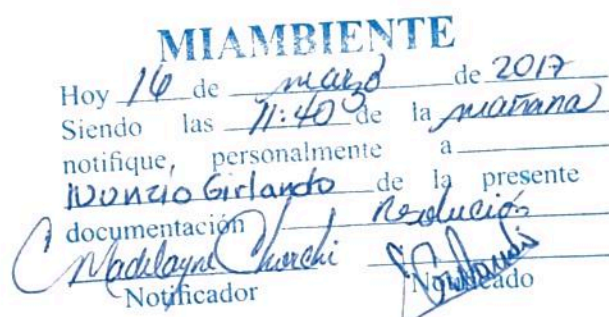 MIAMBIENTE
Hoy 16 de marzo de 2017
Siendo las 11:40 de la mañana
notifique, personalmente a
Nunzio Girlando de la presente
documentación Resolución
Madelayne
Notificador Notificado